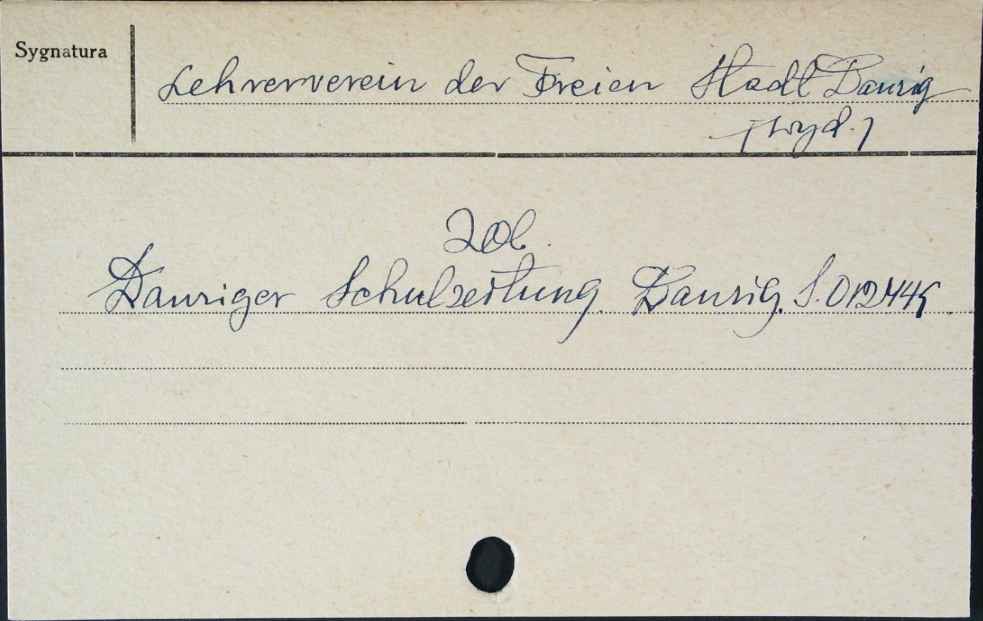 Sygnatura
Lehrerverein der Freien Stadt Danzig
[wyd.]
Zob.
Danziger Schulzeitung. Danzig. S.012445